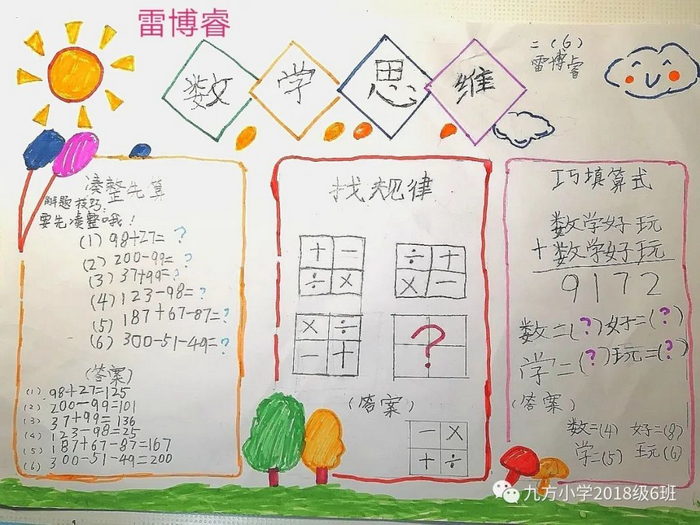 雷博睿
数学思维
二(6)
雷博睿
凑整先算
解题技巧:
要先凑整哦!
(1) 98+27=?
(2) 200-99=?
(3) 37+99=?
(4) 123-98=?
(5) 187+67-87=?
(6) 300-51-49=?
(答案)
(1) 98+27=125
(2) 200-99=101
(3) 37+99=136
(4) 123-98=25
(5) 187+67-87=167
(6) 300-51-49=200
找规律
+ - ÷ +
÷ × - ×
× ÷ ?
- +
(答案)
- ×
+ ÷
巧填算式
数学好玩
+数学好玩
9172
数=(?)好=(?)
学=(?)玩=(?)
(答案)
数=(4) 好=(8)
学=(5) 玩(6)
九方小学2018级6班